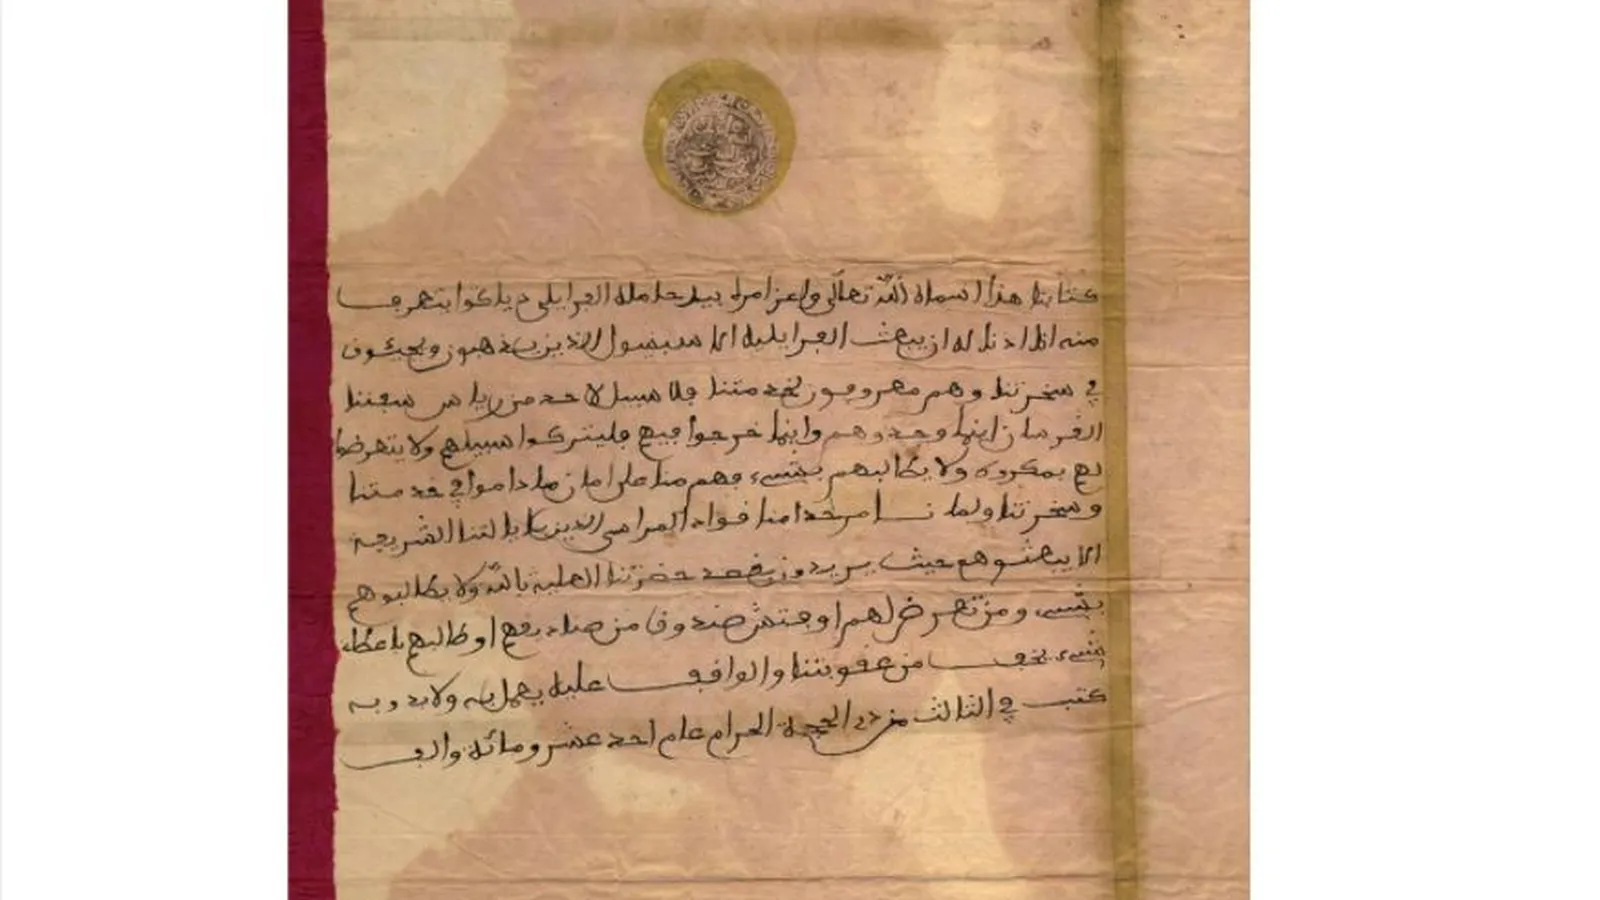 كتابنا هذا اسماه الله تعالى واعز امره بيد حامله الفرايلي دياكوا يتعرف
منه اننا اذنا له ان يبعث الفرايلية الى الذين يذهبون ويجيئون
في سخرتنا وهم معروفون بخدمتنا فلا سبيل لاحد من رياس سفننا
القرصان اينما وجدوهم واينما خرجوا فيهم فليتركوا سبيلهم ولا يتعرضوا
لهم بمكروه ولا يطالبهم بشيء فهم منا على امان ما داموا في خدمتنا
وسخرتنا من خدامنا قواد المراسي الذين بايالتنا الشريفة
ان يبعثوهم حيث يريدون بقصد حضرتنا العلية بالله ولا يطالبوهم
بشيء ومن تعرض لهم او فتش صندوقا من صناديقهم او طالبهم باعطاء
شيء يخف من عقوبتنا والواقف عليه يعمل به ولا بد وبه
كتب في الثالث من ذي الحجة الحرام عام احد عشر ومائة والف